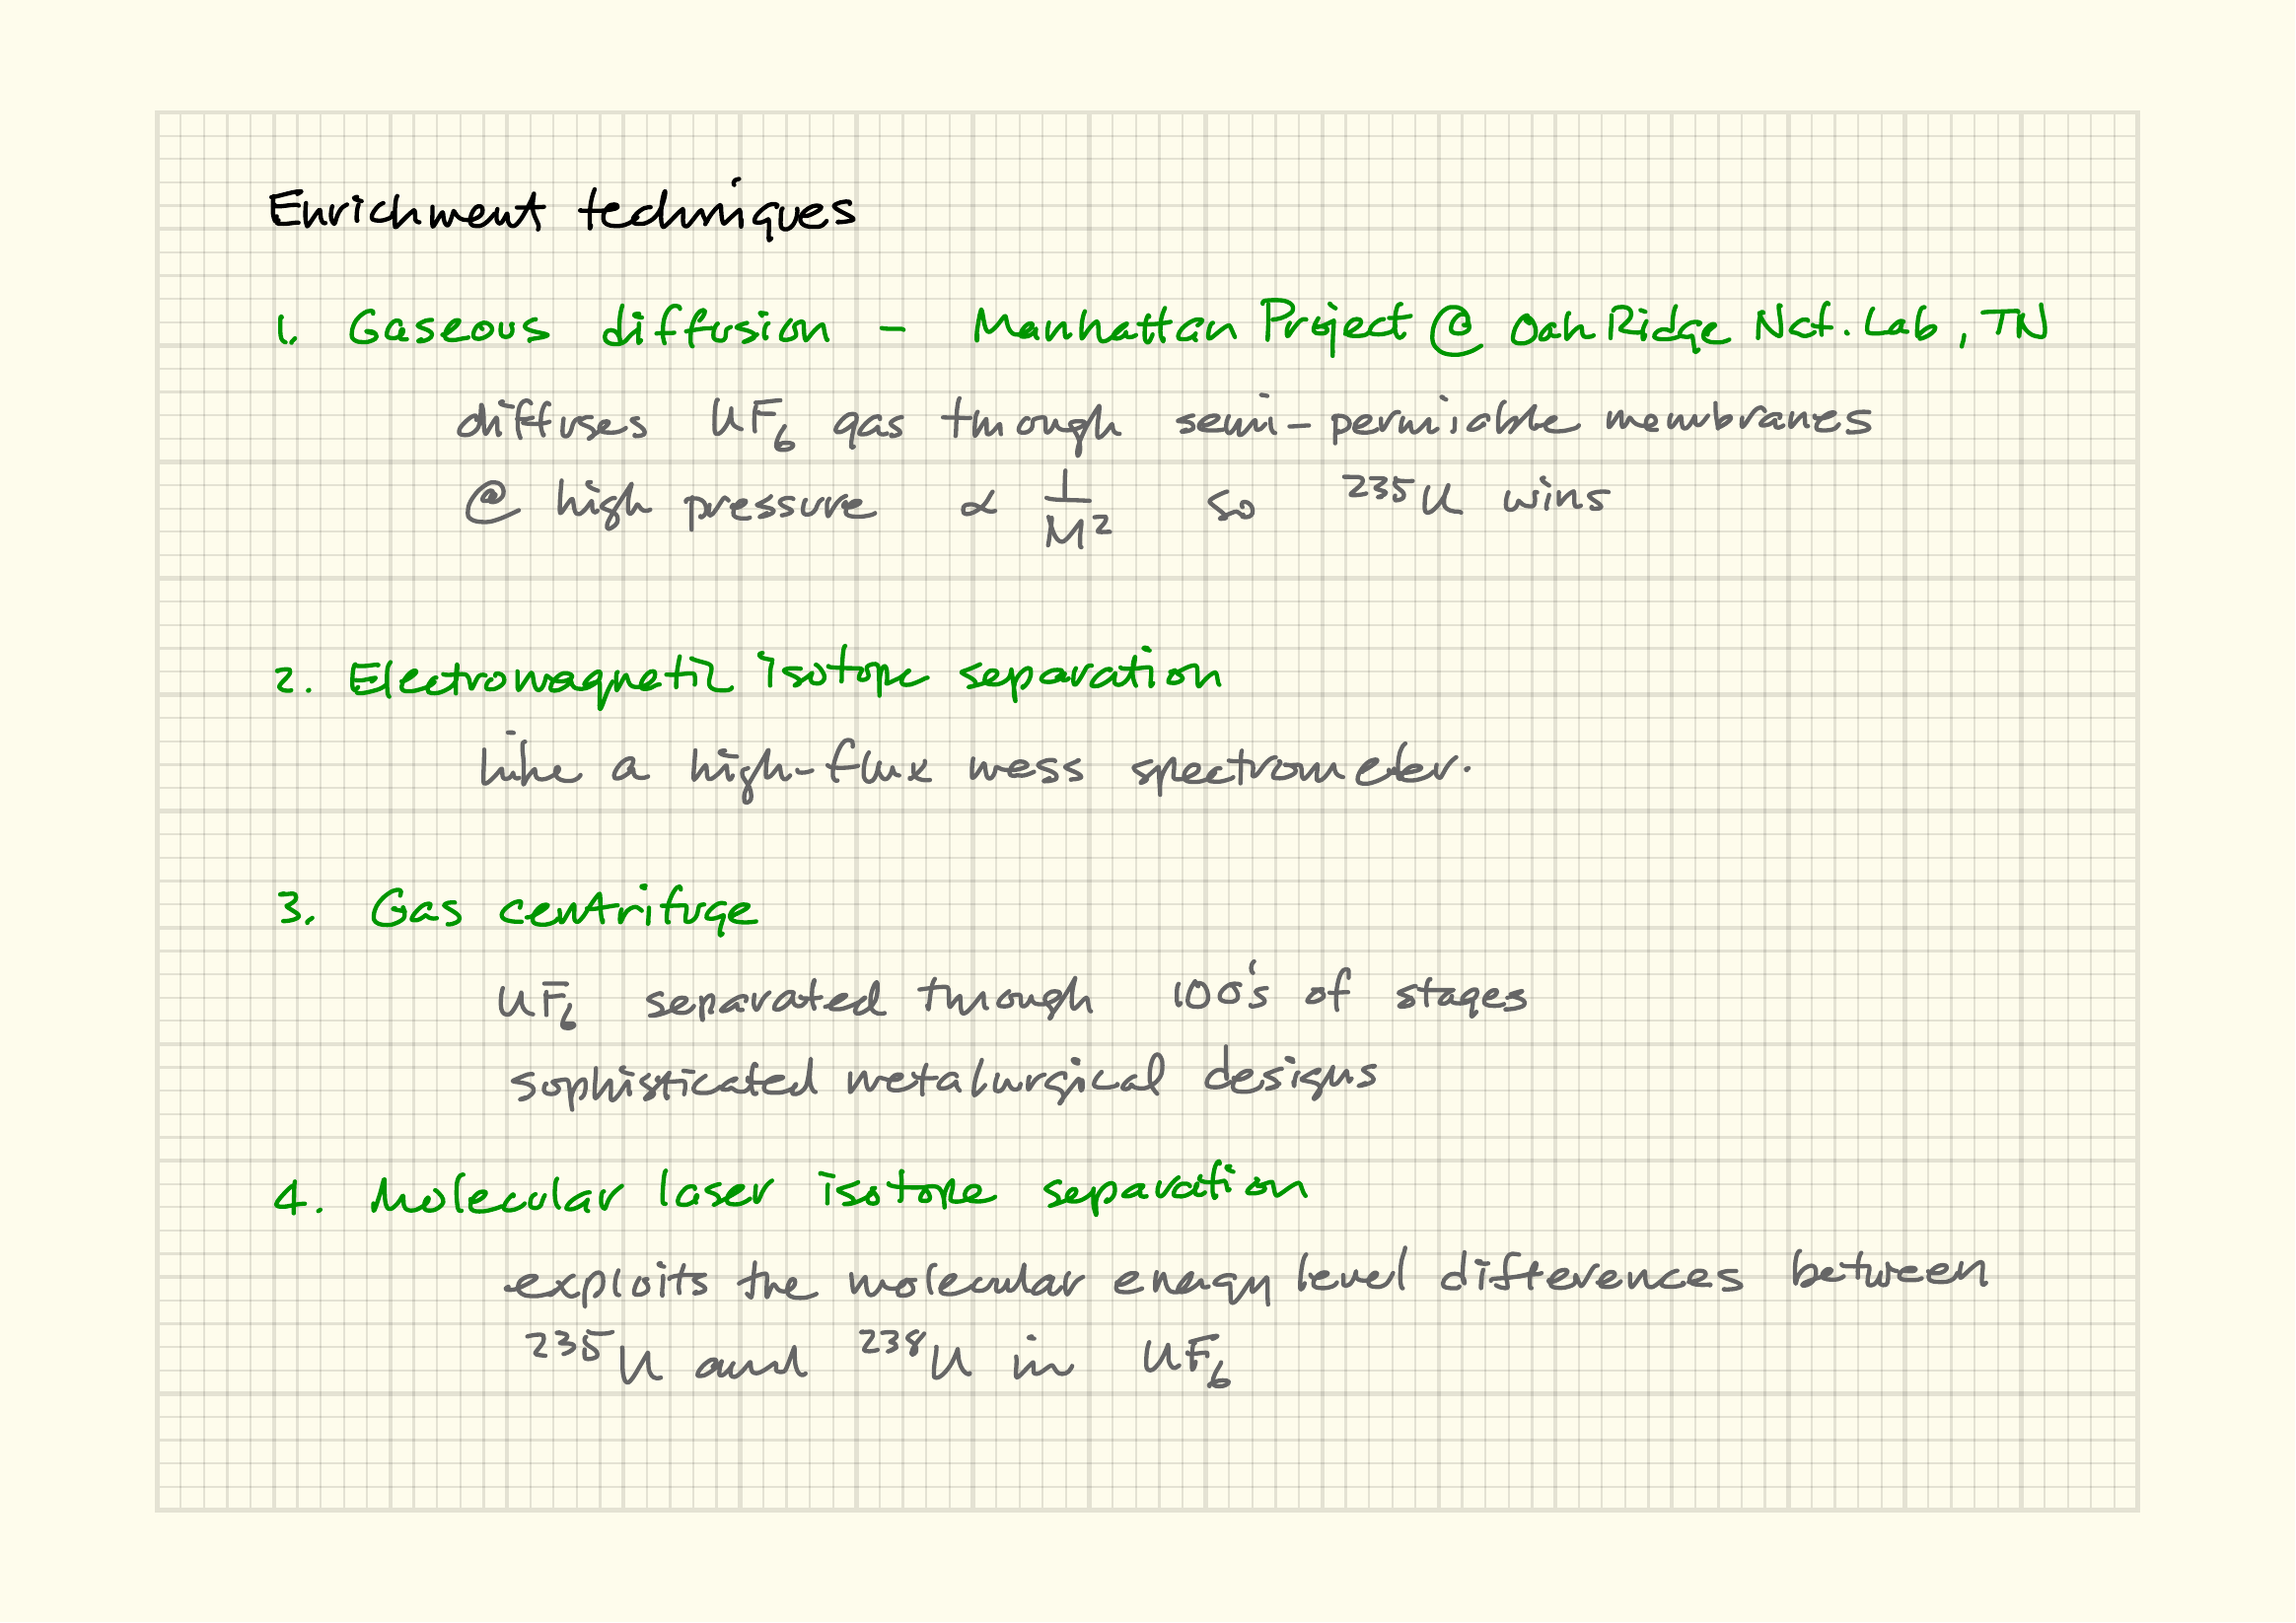 Enrichment techniques
1. Gaseous diffusion - Manhattan Project @ Oak Ridge Nat. Lab, TN
diffuses UF₆ gas through semi-permiable membranes
@ high pressure ∝ 1/M² so ²³⁵U wins
2. Electromagnetic isotope separation
like a high-flux mass spectrometer.
3. Gas centrifuge
UF₆ separated through 100's of stages
sophisticated metalurgical designs
4. Molecular laser isotope separation
exploits the molecular energy level differences between
²³⁵U and ²³⁸U in UF₆